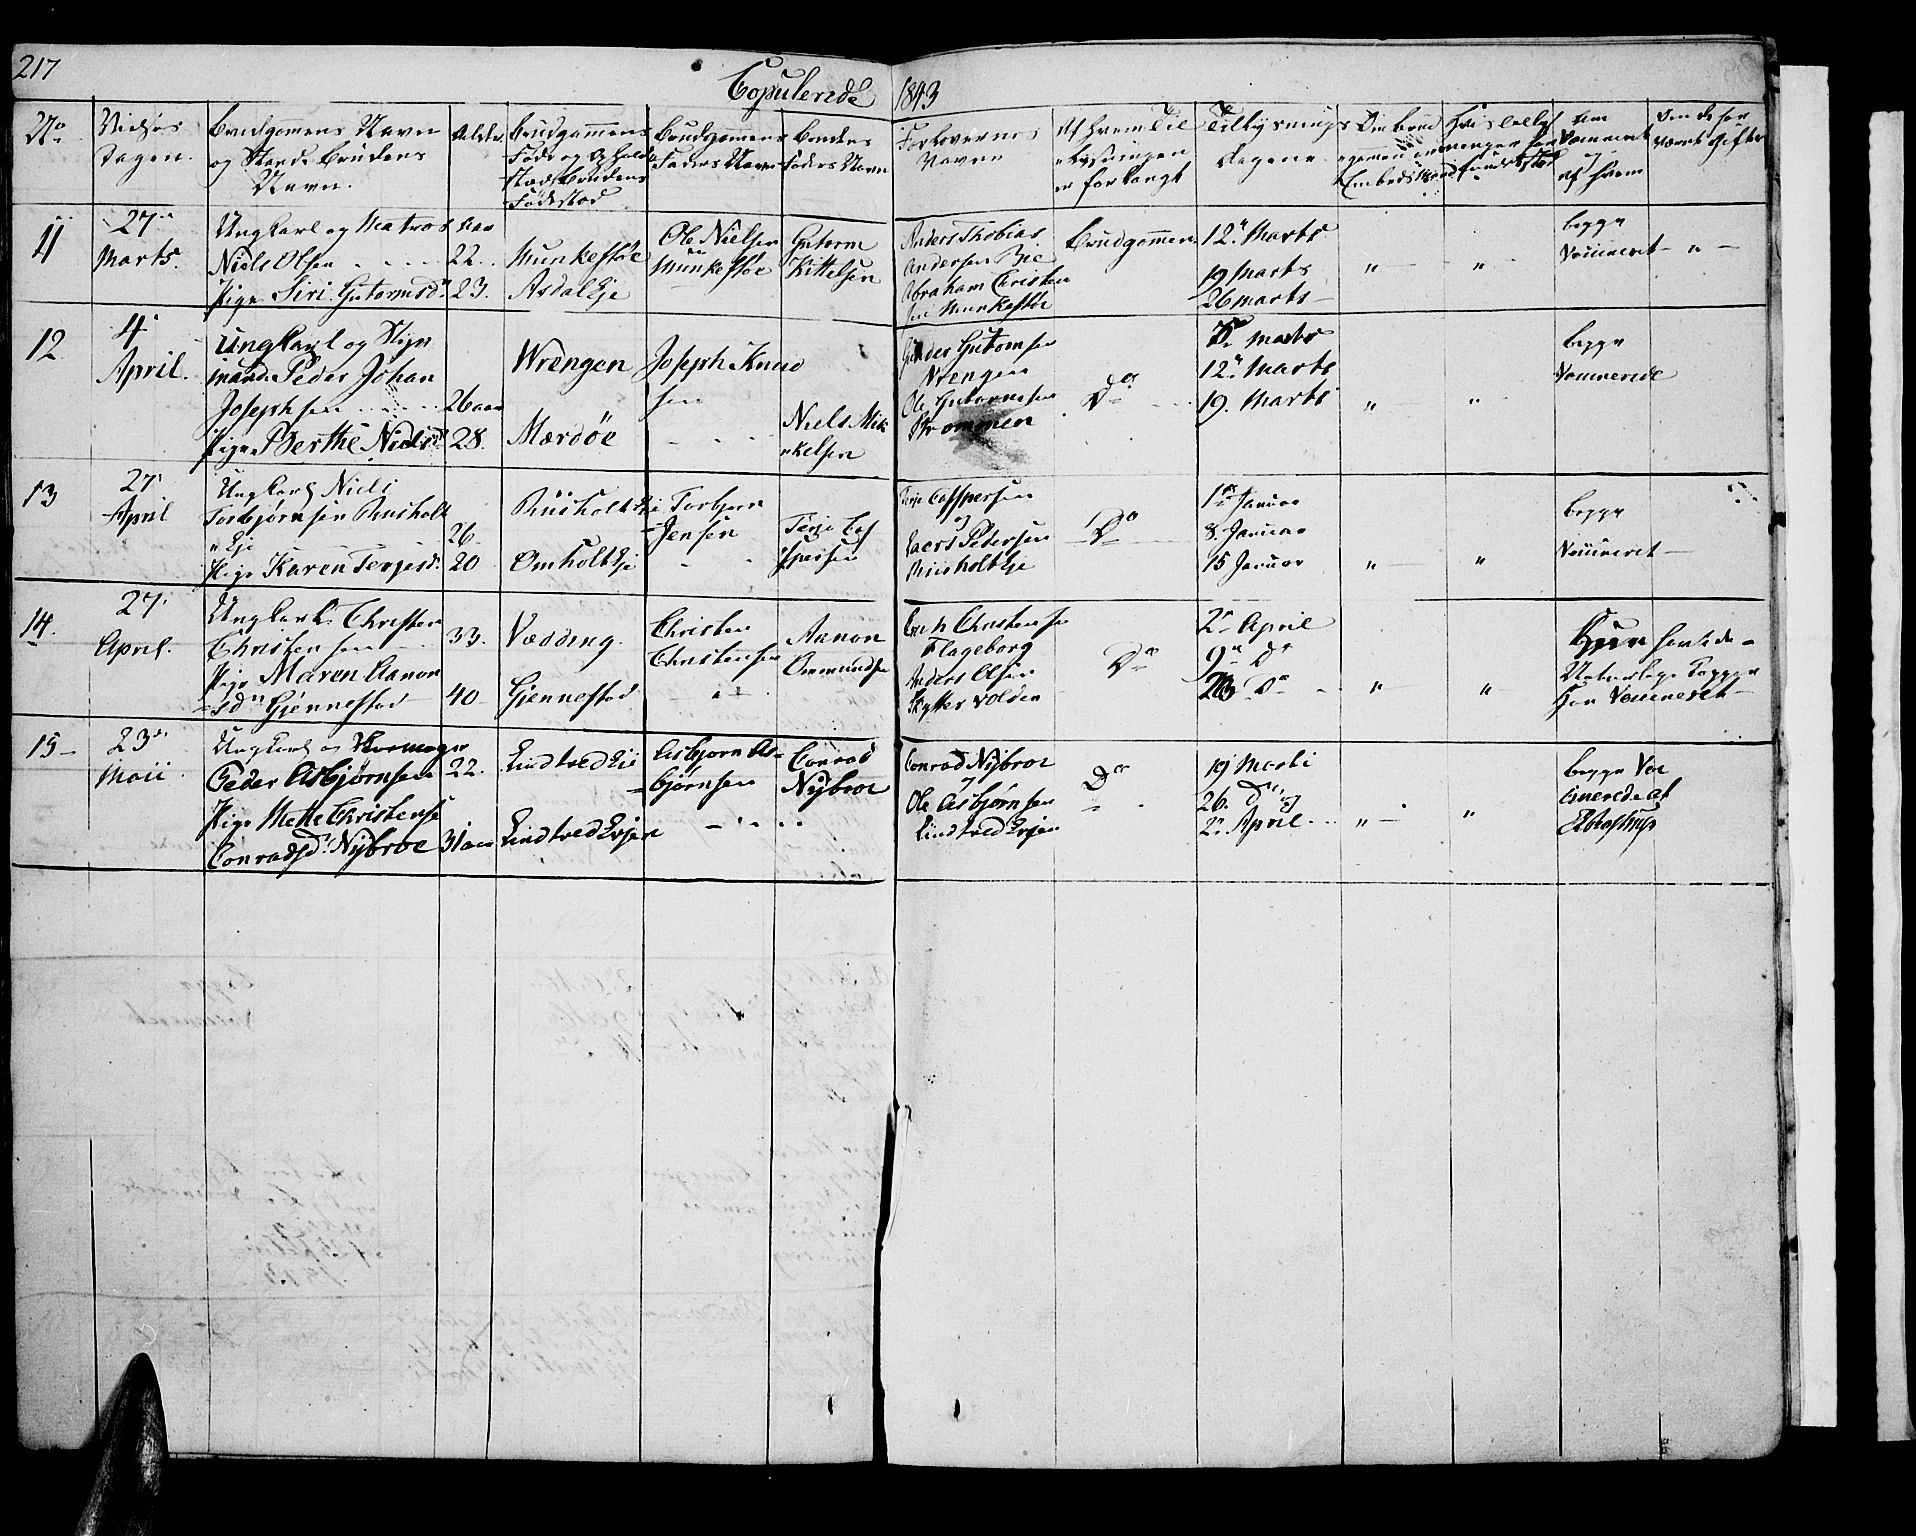 217
Copulerede 1843
No
Vielses
Dagen.
Brudgomens Navn
og Stand. Brudens
Navn.
Alder.
Brudgommens
Føde og Opholds
Stæd. Brudens
Fødestæd
Brudgomens
Faders Navn
Brudens
Faders Navn
Forlovernes
Navne
Af hvem Til
lysningen
er forlangt
Tillysnings
Dagene
Om
Vaccineret
af hvem
11
27de
Marts.
Ungkarl og Matros
Niels Olsen
Pige Siri Gutormsd.
Aar
22.
23.
Munkesøe
Asdal Eje
Ole Nielsen
Munkesøe
Gutorm
Kittelsen
Anders Thobias
Andersen Bie
Abraham Christen
sen Munkesøe
Brudgommen
12te Marts
19 Marts
26 Marts
"
"
begge
Vaccineret
"
12
4de
April.
Ungkarl og
mand Peder Johan
Josephsen
Pige Berthe Nielsd.
26 aar
28.
Wrengen
Mærdøe
Joseph Knud
sen
Niels Mik
kelsen
Gutormsen
Wrengen
Ole Gutormsen
Brommen
Do
5te Marts
12te Marts
19. Marts
"
"
begge
Vaccinerede
13
27
April
Ungkarl Niels
Torbjørnsen Rusholt
Eje
Pige Karen Terjesd.
26
20
Riisholt Eie
Omholt Eje
Torbjørn
Jensen
Terje Cas
persen
Terje Caspersen
og
Laers Pedersen
Riisholt Eje
Do
1te Januar
8. Januar
15 Januar
"
"
begge
Vaccineret
14.
27
April.
Ungkarl Christen
Christensen
Pige Maren Aanon
sdn Gjennestad
33.
40
Vedding.
Gjennestad
Christen
Christensen
Aanon
Ommundsen
Christensen
Flageborg
Anders Olsen
Skytter Volden
Do
2den April
9de Do
23 Do
"
"
Hun havt de
Naturlige Kopper
Han Vaccineret
15
23de
Maii
Ungkarl og
Peder Asbjørnsen
Pige Mette Christense
Conradsd. Nijbroe
22.
31 aar
Lindtved Eie
Lindtved Eijen
Asbjørn As
bjørnsen
Conrad
Nijbroe
Conrad Nijbroe
og
Ole Asbjørnsen
Lindtved Eijen
Do
19 Marti
26. Do og
2den April
"
"
begge Vac
cinerede af
Abrastrup